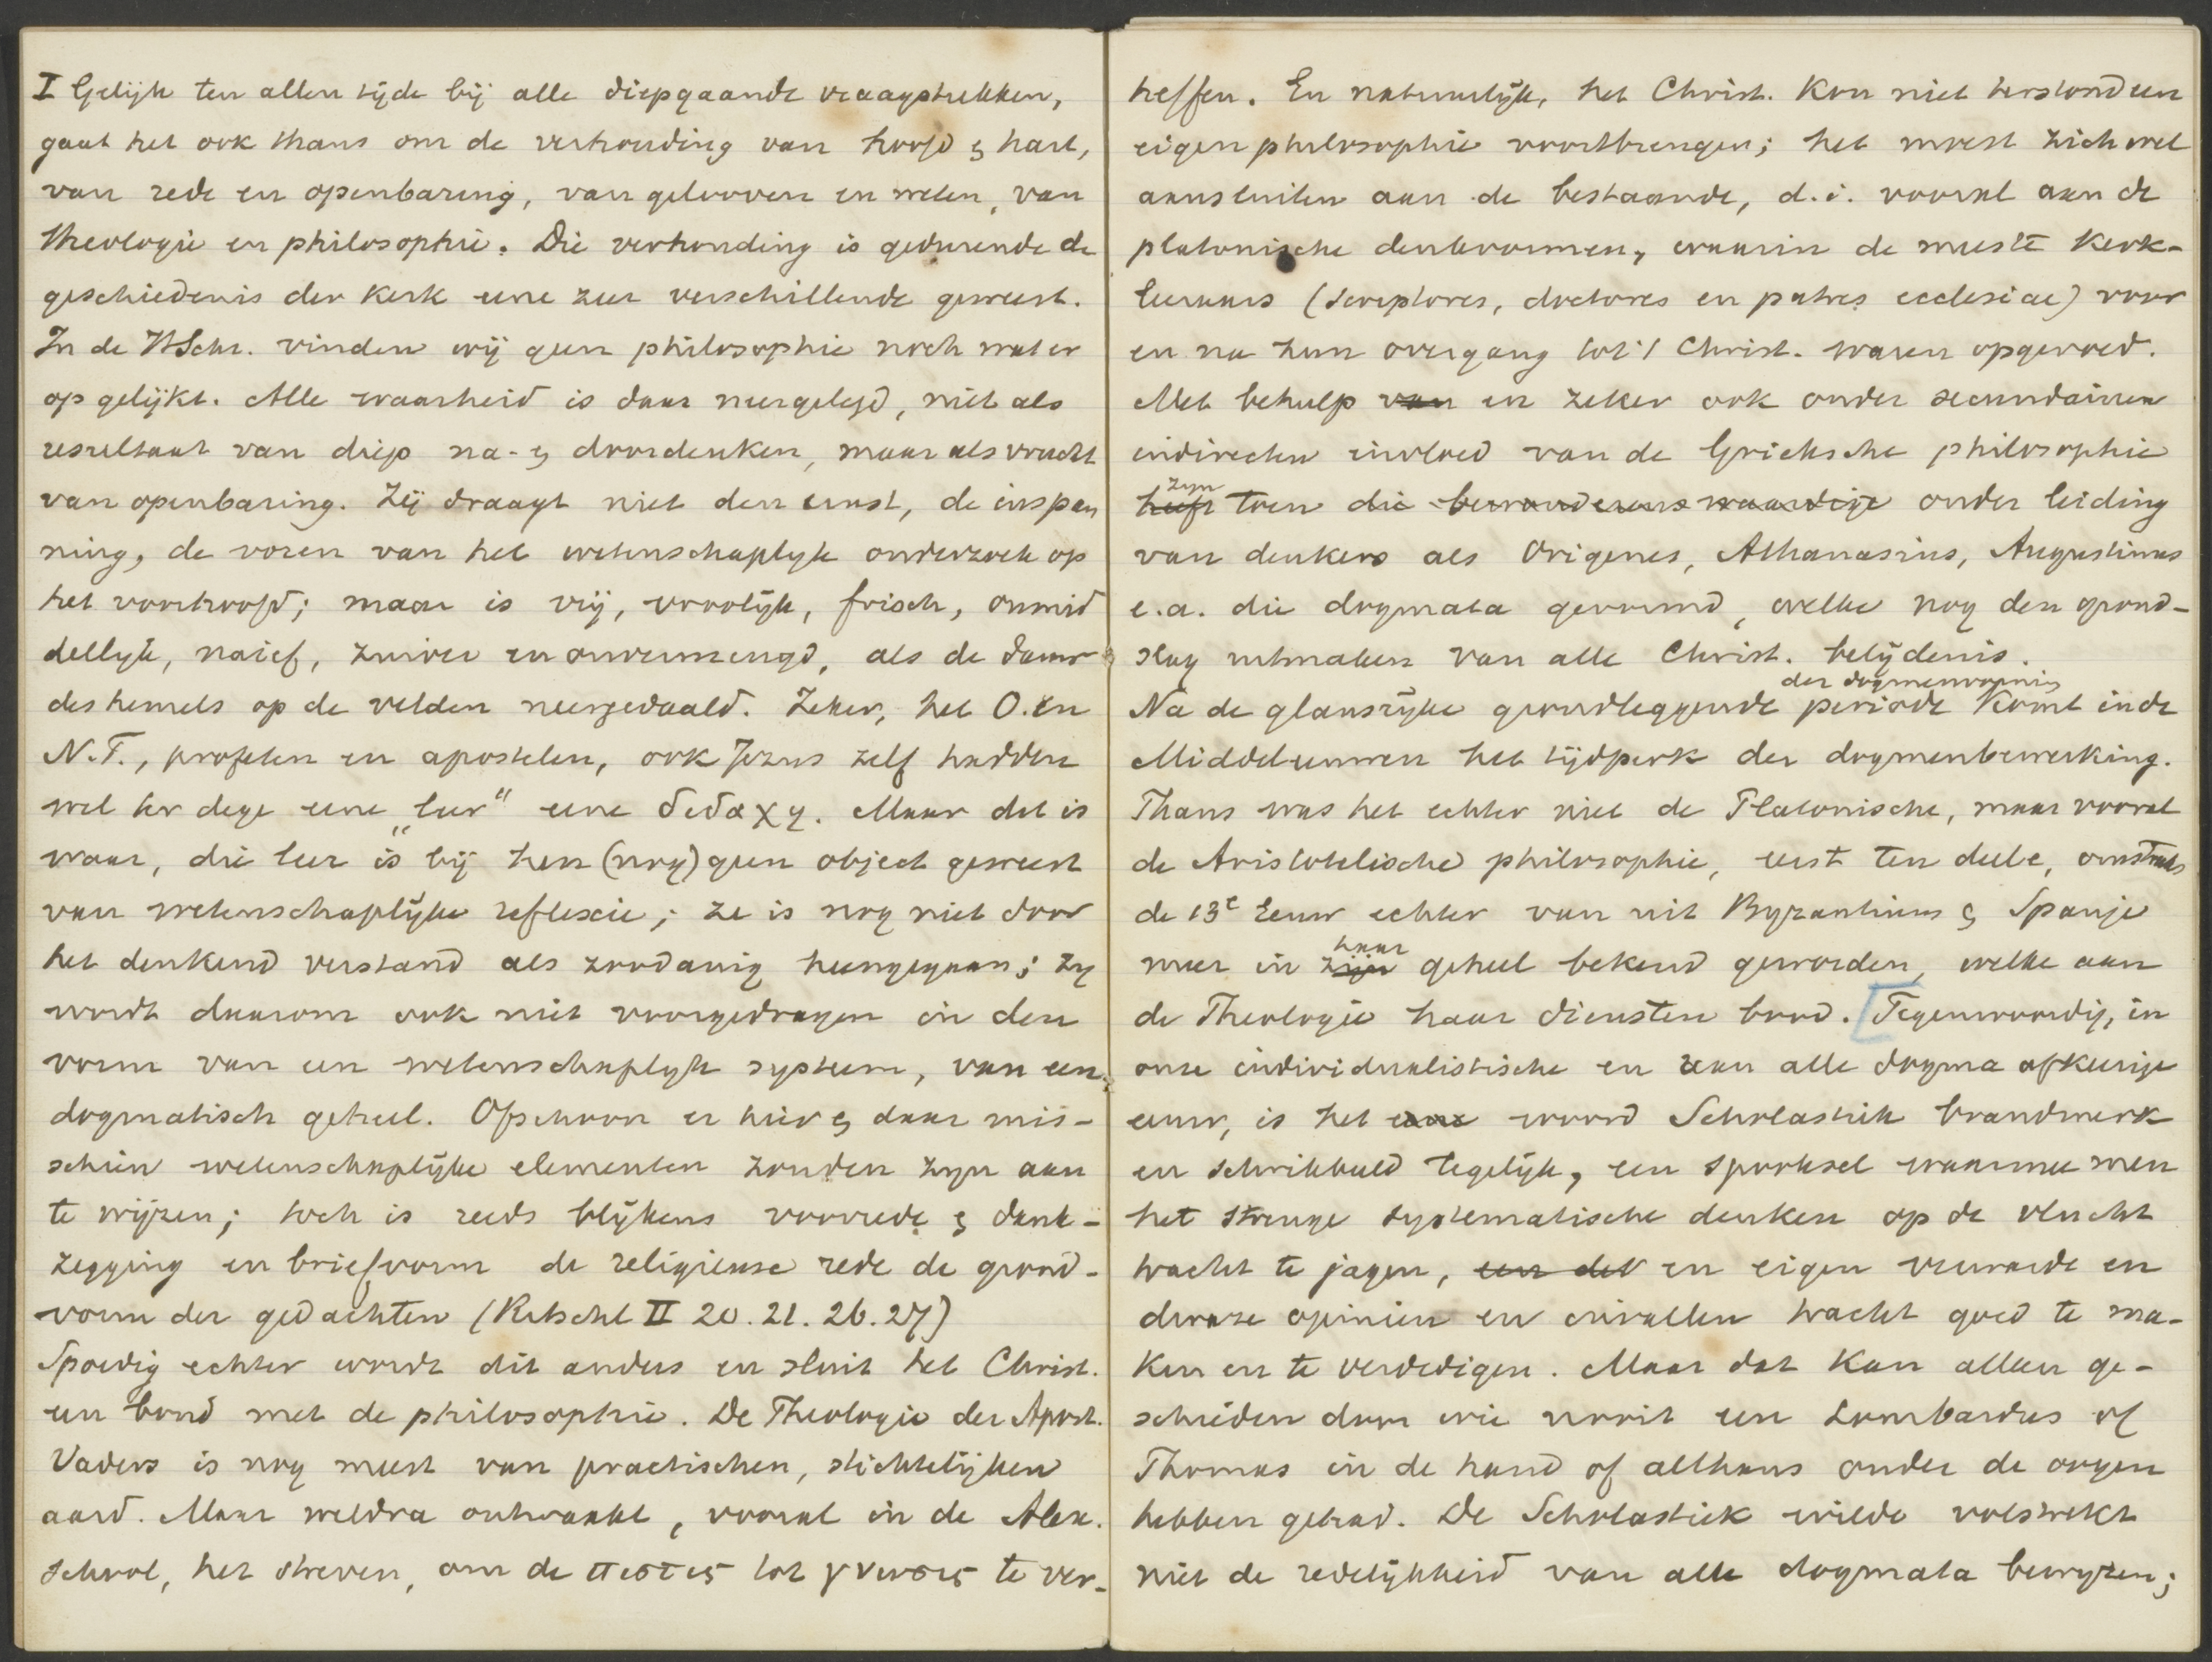 I Gelijk ten allen tijde bij alle diepgaande vraagstukken,
gaat het ook thans om de verhouding van hoofd & hart,
van rede en openbaring, van gelooven en weten, van
theologie en philosophie. Die verhouding is gedurende de
geschiedenis der Kerk eene zeer verschillende geweest.
In de HSchr. vinden wij geen philosophie noch wat er
op gelijkt. Alle waarheid is daar neergelegd, niet als
resultaat van diep na- & doordenken, maar als vrucht
van openbaring. Zij draagt niet den ernst, de inspan
ning, de voren van het wetenschaplyk onderzoek op
het voorhoofd; maar is vrij, vroolijk, frisch, onmid
dellyk, naief, zuiver en onvermengd, als de dauw
des hemels op de velden neergedaald. Zeker, het O. en
N.T., profeten en apostelen, ook Jezus zelf hadden
wel ter dege eene „leer" eene διδαχη. Maar dat is
waar, die leer is bij hen (nog) geen object geweest
van wetenschaplijke reflexie; ze is nog niet door
het denkend verstand als zoodanig heengegaan; zy
wordt daarom ook niet voorgedragen in den
vorm van een wetenschaplyk systeem, van een
dogmatisch geheel. Ofschoon er hier & daar mis-
schien wetenschaplijke elementen zouden zyn aan
te wijzen; toch is reeds blijkens voorrede & dank-
zegging en briefvorm de religieuse rede de grond-
vorm der gedachten (Ritschl II 20. 21. 26. 27)
Spoedig echter wordt dit anders en sluit het Christ.
een bond met de philosophie. De Theologie der Apost.
Vaders is nog meest van practischen, stichtelijken
aard. Maar weldra ontwaakt, vooral in de Alex.
school, het streven, om de πιστις tot γνωσις te ver-
heffen. En natuurlijk, het Christ. kon niet terstond een
eigen philosophie voortbrengen; het moest zich wel
aansluiten aan de bestaande, d.i. vooral aan de
platonische denkvormen, waarin de meeste Kerk-
leeraars (scriptores, doctores en patres ecclesiae) voor
en na hun overgang tot 't Christ. waren opgevoed.
Met behulp van en zeker ook onder secundairen
indirecten invloed van de Grieksche philosophie
heeft zyn toen die bewonderenswaardige onder leiding
van denkers als Origenes, Athanasius, Augustinus
e.a. die dogmata gevormd, welke nog den grond-
slag uitmaken van alle Christ. belijdenis.
Na de glansrijke grondleggende periode der dogmenvorming komt in de
Middeleeuwen het tijdperk der dogmenbewerking.
Thans was het echter niet de Platonische, maar vooral
de Aristotelische philosophie, eerst ten deele, omstreeks
de 13e Eeuw echter van uit Byzantium & Spanje
meer in zijn haar geheel bekend geworden, welke aan
de Theologie haar diensten bood. [Tegenwoordig, in
onze individualistische en van alle dogma afkeerige
eeuw, is het woord Scholastiek brandmerk
en schrikbeeld tegelijk, een spooksel waarmee men
het strenge systematische denken op de vlucht
tracht te jagen, een det en eigen verwarde en
dwaze opinien en invallen tracht goed te ma-
ken en te verdedigen. Maar dat kan alleen ge-
schieden door wie nooit een Lombardus of
Thomas in de hand of althans onder de oogen
hebben gehad. De Scholastiek wilde volstrekt
niet de redelijkheid van alle dogmata bewyzen;